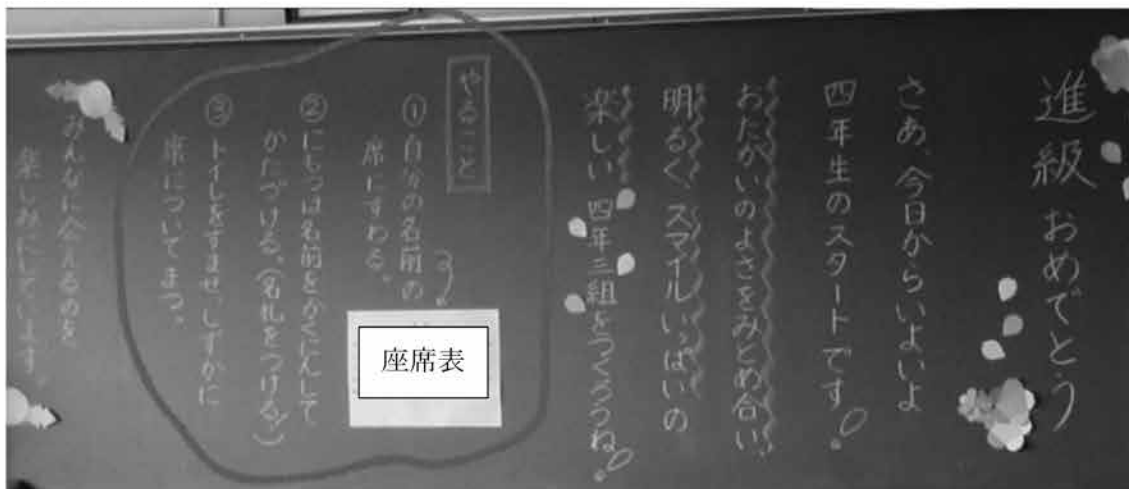 進級おめでとう
さあ、今日からいよいよ
四年生のスタートです。
おたがいのよさをみとめ合い、
明るく、スマイルいっぱいの
楽しい四年三組をつくろうね。
やること
①自分の名前の
席にすわる。
座席表
②にもつは名前をかくにんして
かたづける。(名札をつける。)
③トイレをすませ、しずかに
席についてまつ。
みんなに会えるのを
楽しみにしています。